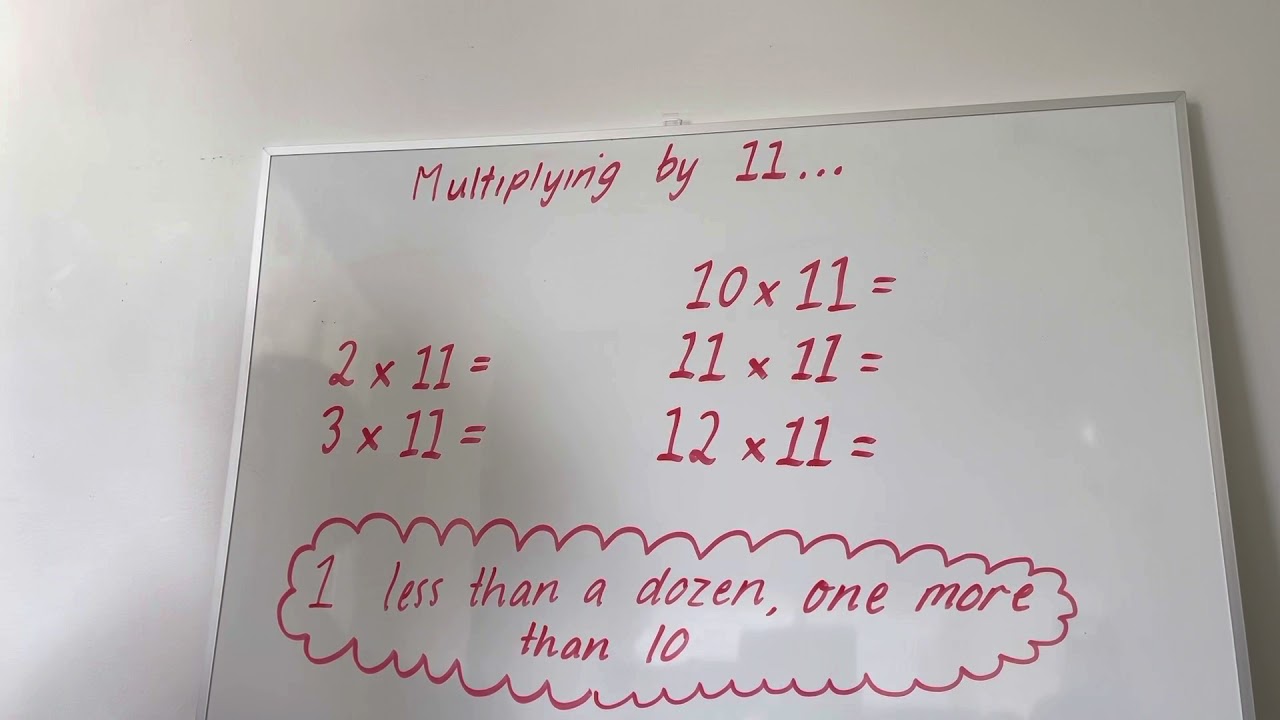 Multiplying by 11...
2 x 11 =
3 x 11 =
10 x 11 =
11 x 11 =
12 x 11 =
1 less than a dozen, one more
than 10